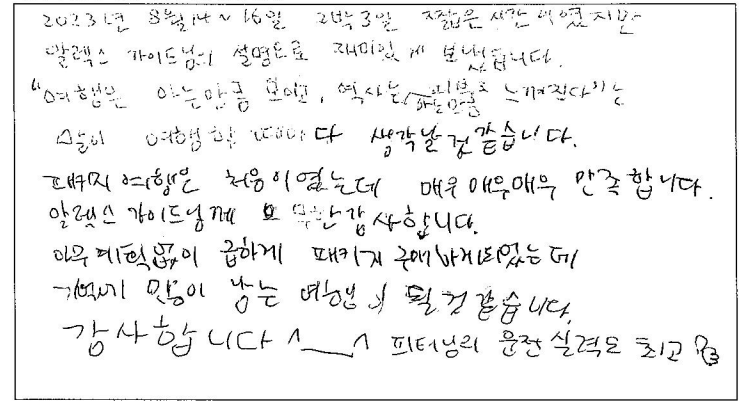 2023년 8월 14~16일 2박3일 짧은 시간이였지만
알렉스 가이드님의 설명으로 재미있게 보냈습니다.
"여행은 아는만큼 보이고, 역사는 아는만큼 느껴진다"는
말이 여행 할 때마다 생각날 것 같습니다.
패키지 여행은 처음이였는데 매우매우매우 만족합니다.
알렉스 가이드님께 무한감사합니다.
아무계획없이 급하게 패키지 구매하게되었는데
기억에 많이 남는 여행이 될 것 같습니다.
감사합니다 ^__^ 피터님의 운전실력도 최고